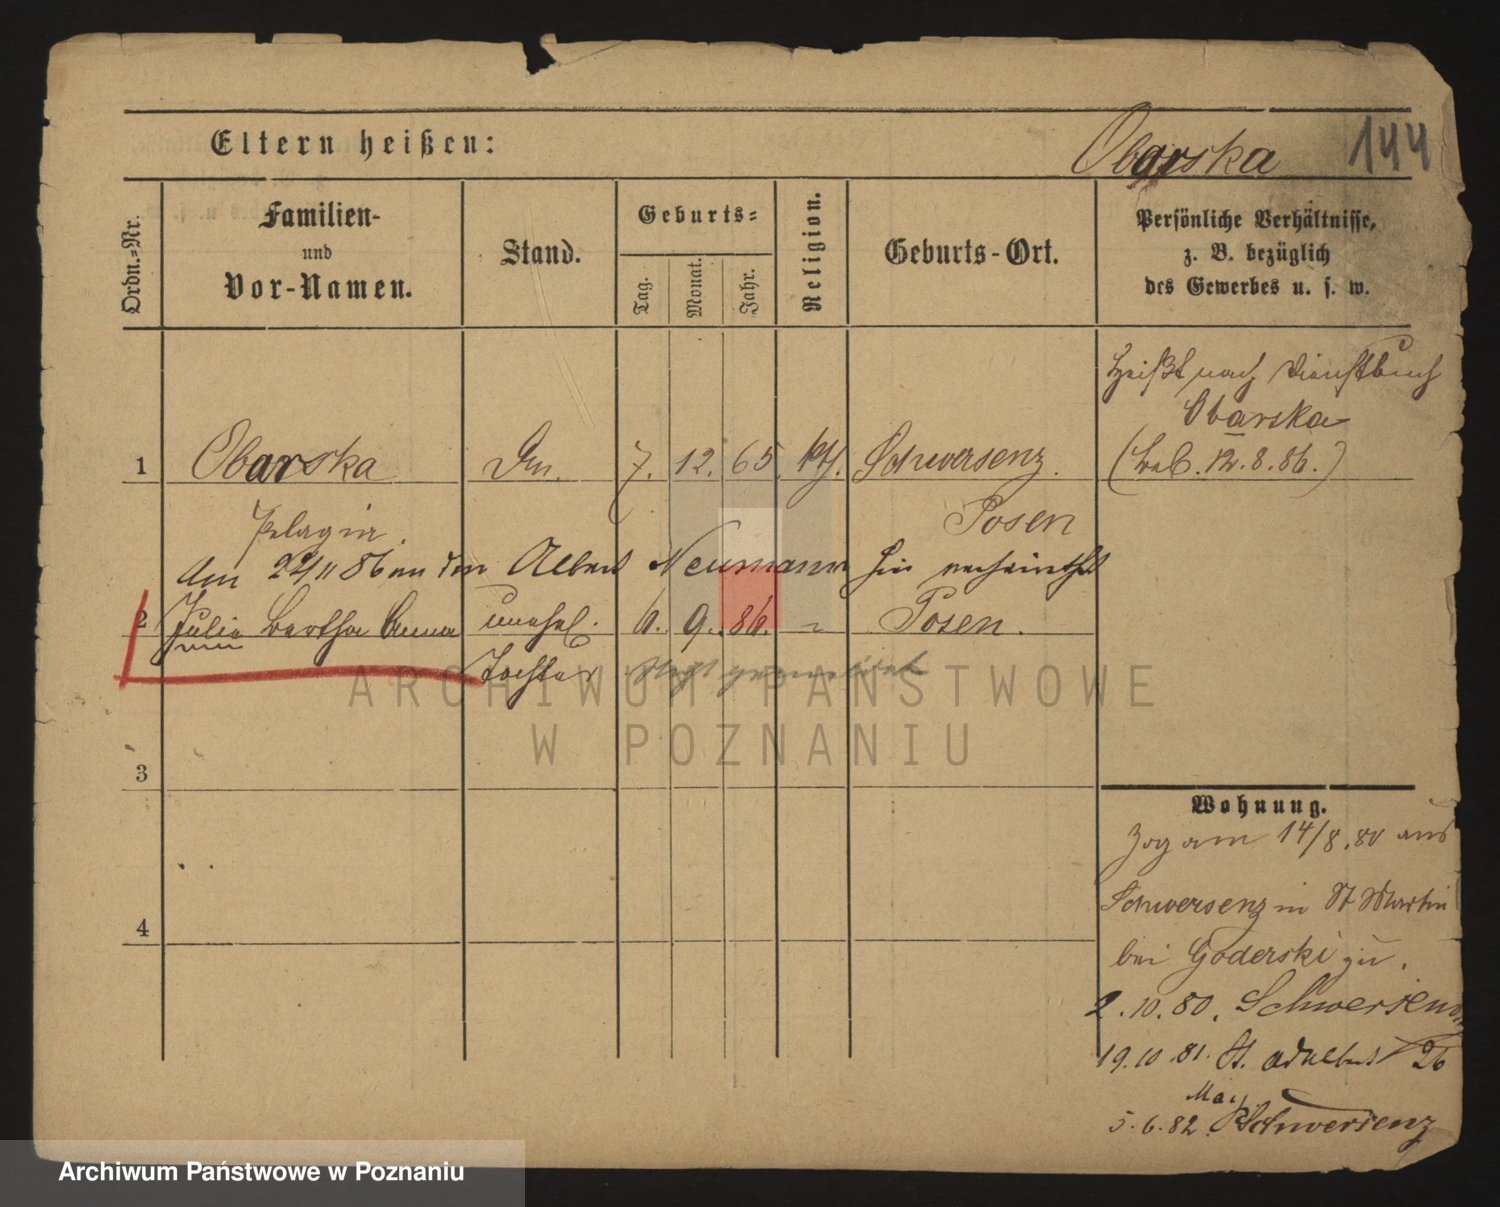 144
Eltern heißen: Obarska
Ordn.-Nr.
Familien-
und
Vor-Namen.
Stand.
Geburts-
Tag. Monat. Jahr.
Religion.
Geburts-Ort.
Persönliche Verhältnisse,
z. B. bezüglich
des Gewerbes u. s. w.
heißt nach Dienstbuch
Obarska
1 Obarska 7. 12. 65 kth. Schwersenz.
12.8.86.)
Pelagia. Posen
Am 22/11 86 an den Albert Neumann hier verheirathet
2 Julie Bertha Anna unehel. 6. 9. 86. Posen.
Tochter
3
4
Wohnung.
Zog am 14/8.80 aus
Schwersenz in St Martin
bei Goderski zu.
2.10.80. Schwersenz
19.10.81. St. Adalbert 26
5.6.82. Schwersenz
ARCHIWUM PAŃSTWOWE
W POZNANIU
Archiwum Państwowe w Poznaniu